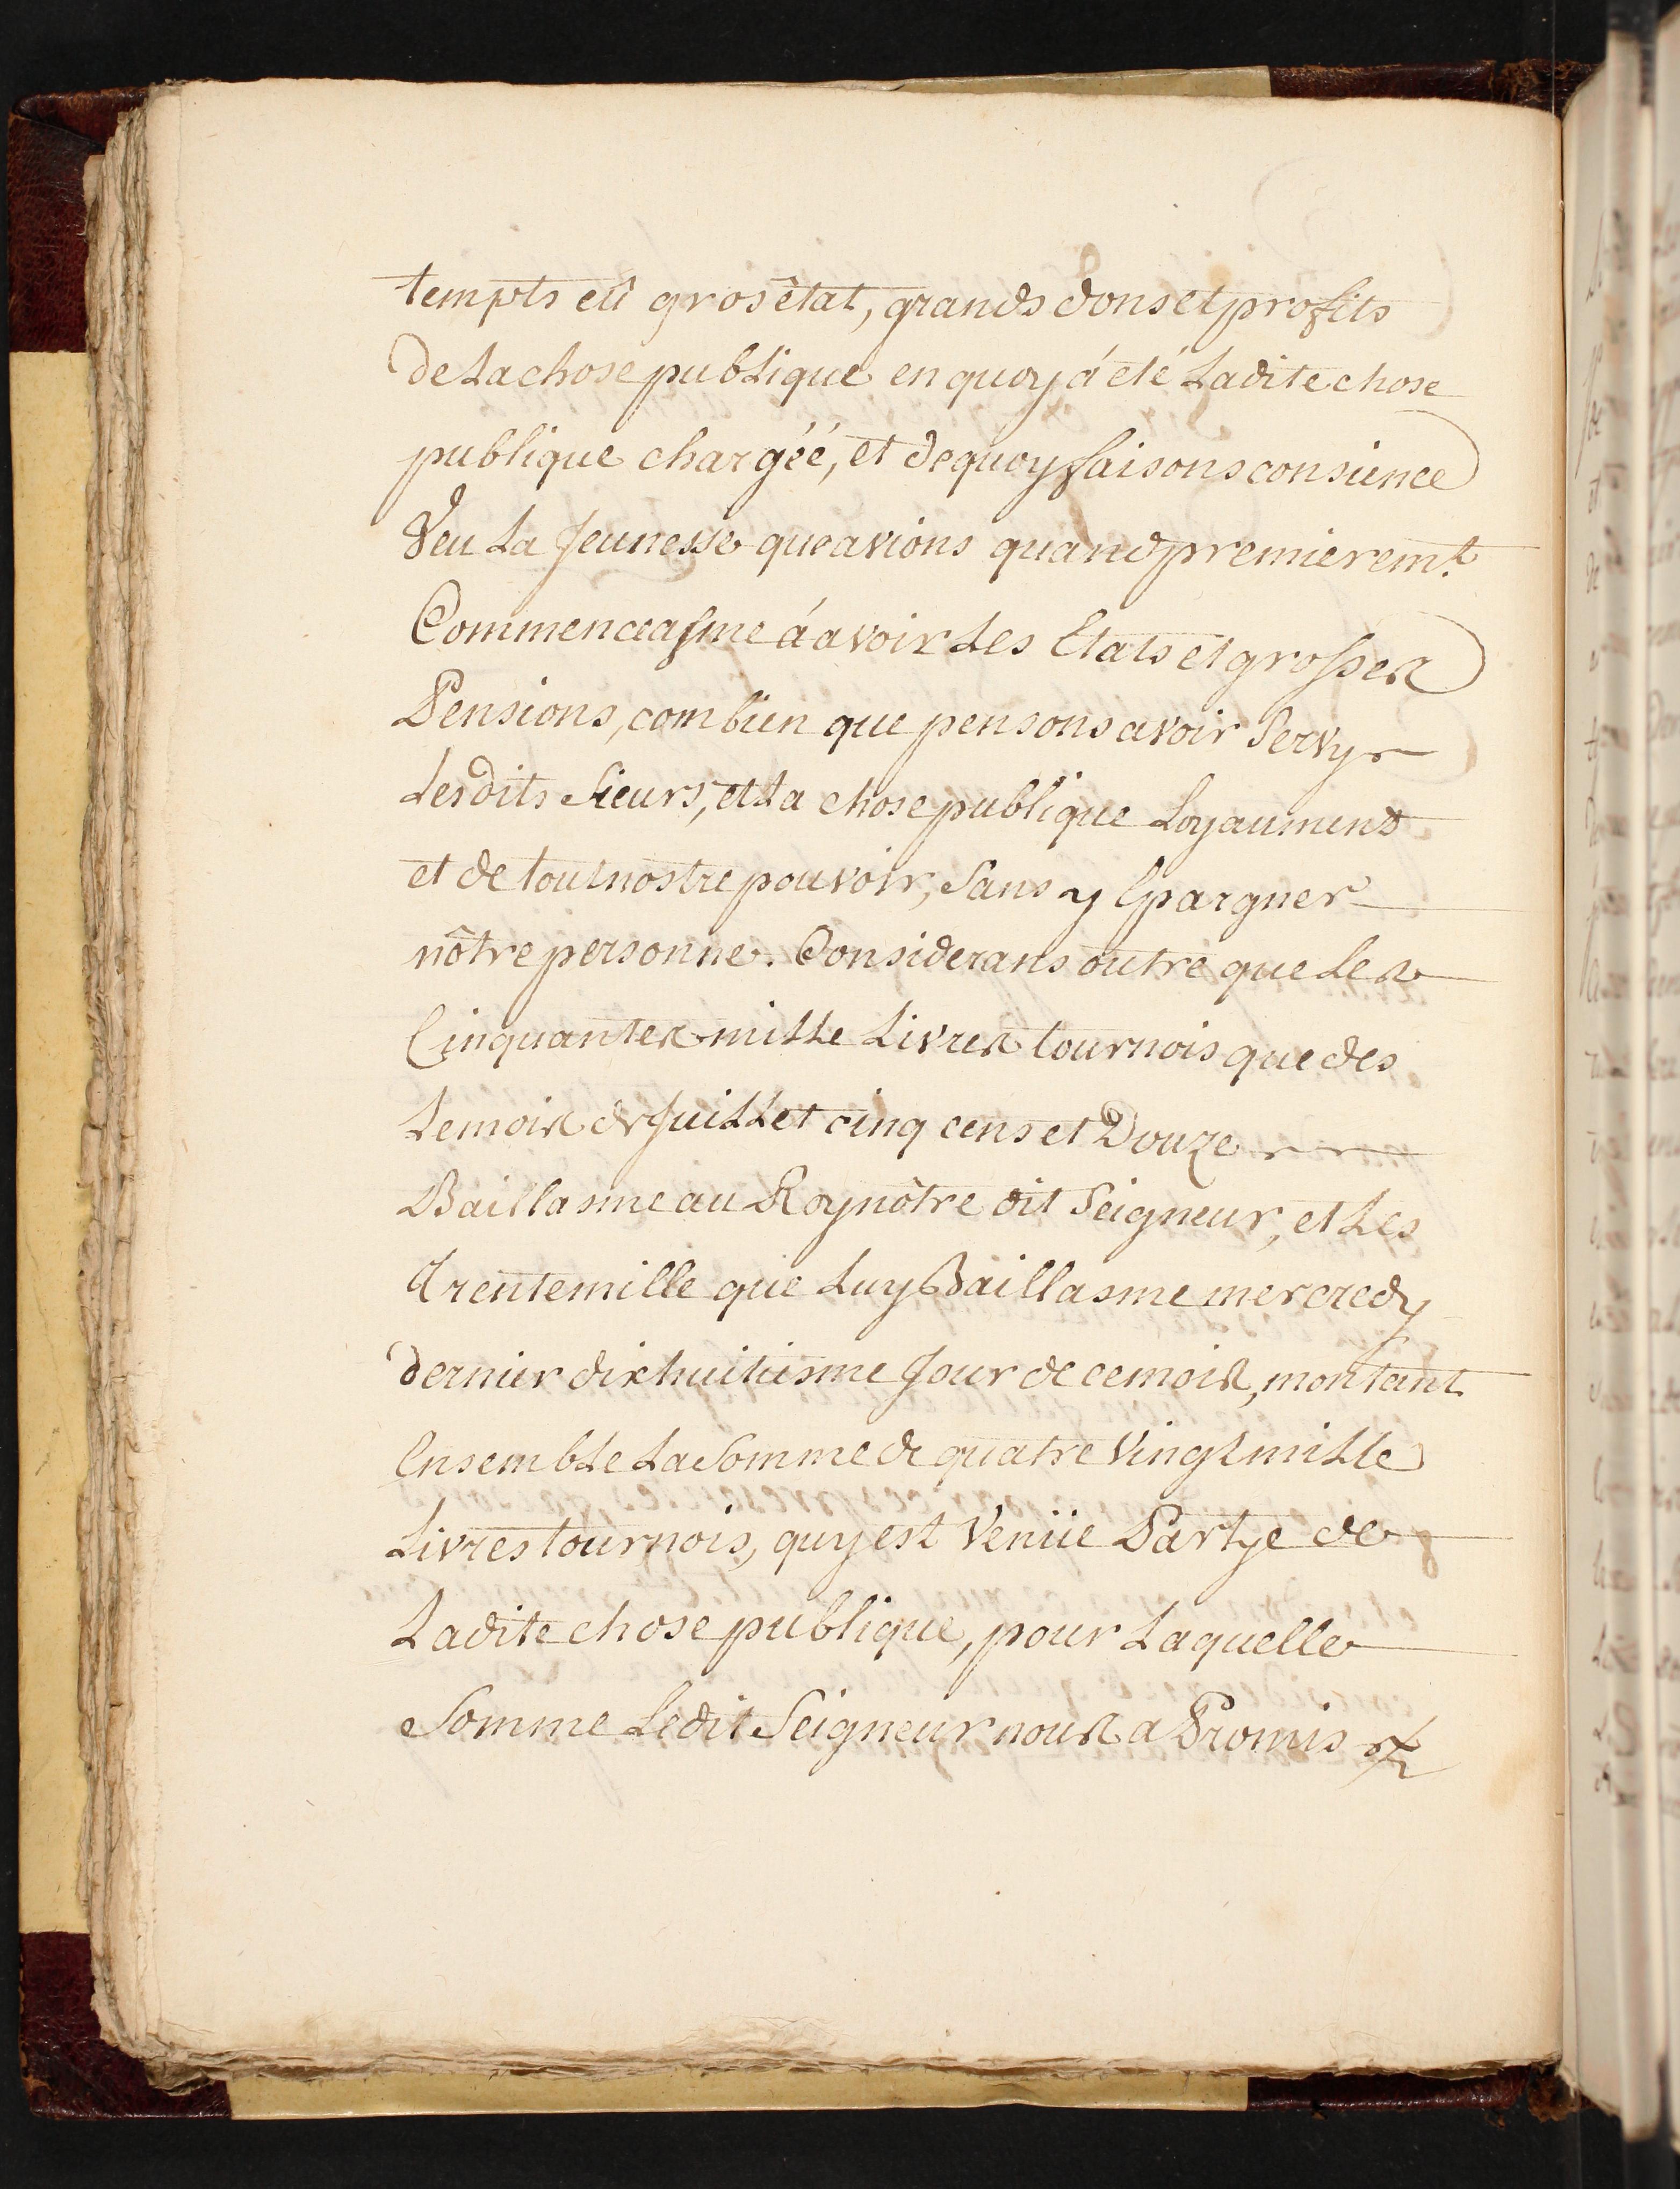 tempts eû gros êtat, grands dons et profits
de La chose publique en quoy á été Ladite chose
publique chargéé, et de quoy faisons consience
Veu La Jeunesse que avions quand premierem.t
Commenceasme á avoir Les Etats et grosses
Pensions, combien que pensons avoir Servy
Lesdits Sieurs, et La chose publique Loyaument
et de tout nostre pouvoir, Sans y Epargner
nôtre personne. Considerans outre que Les
Cinquantes mille Livres tournois que des
Le mois de Juillet cinq cens et Douze
Baillasme au Roy nôtre dit Seigneur, et Les
Trente mille que Luy Baillasme mercredy
dernier dixhuitiesme Jour de ce mois, montant
Ensemble La Somme de quatre Vingt mille
Livres tournois, quy est Venüe Partye de
Ladite chose publique, pour Laquelle
Somme Ledit Seigneur nous a Promis